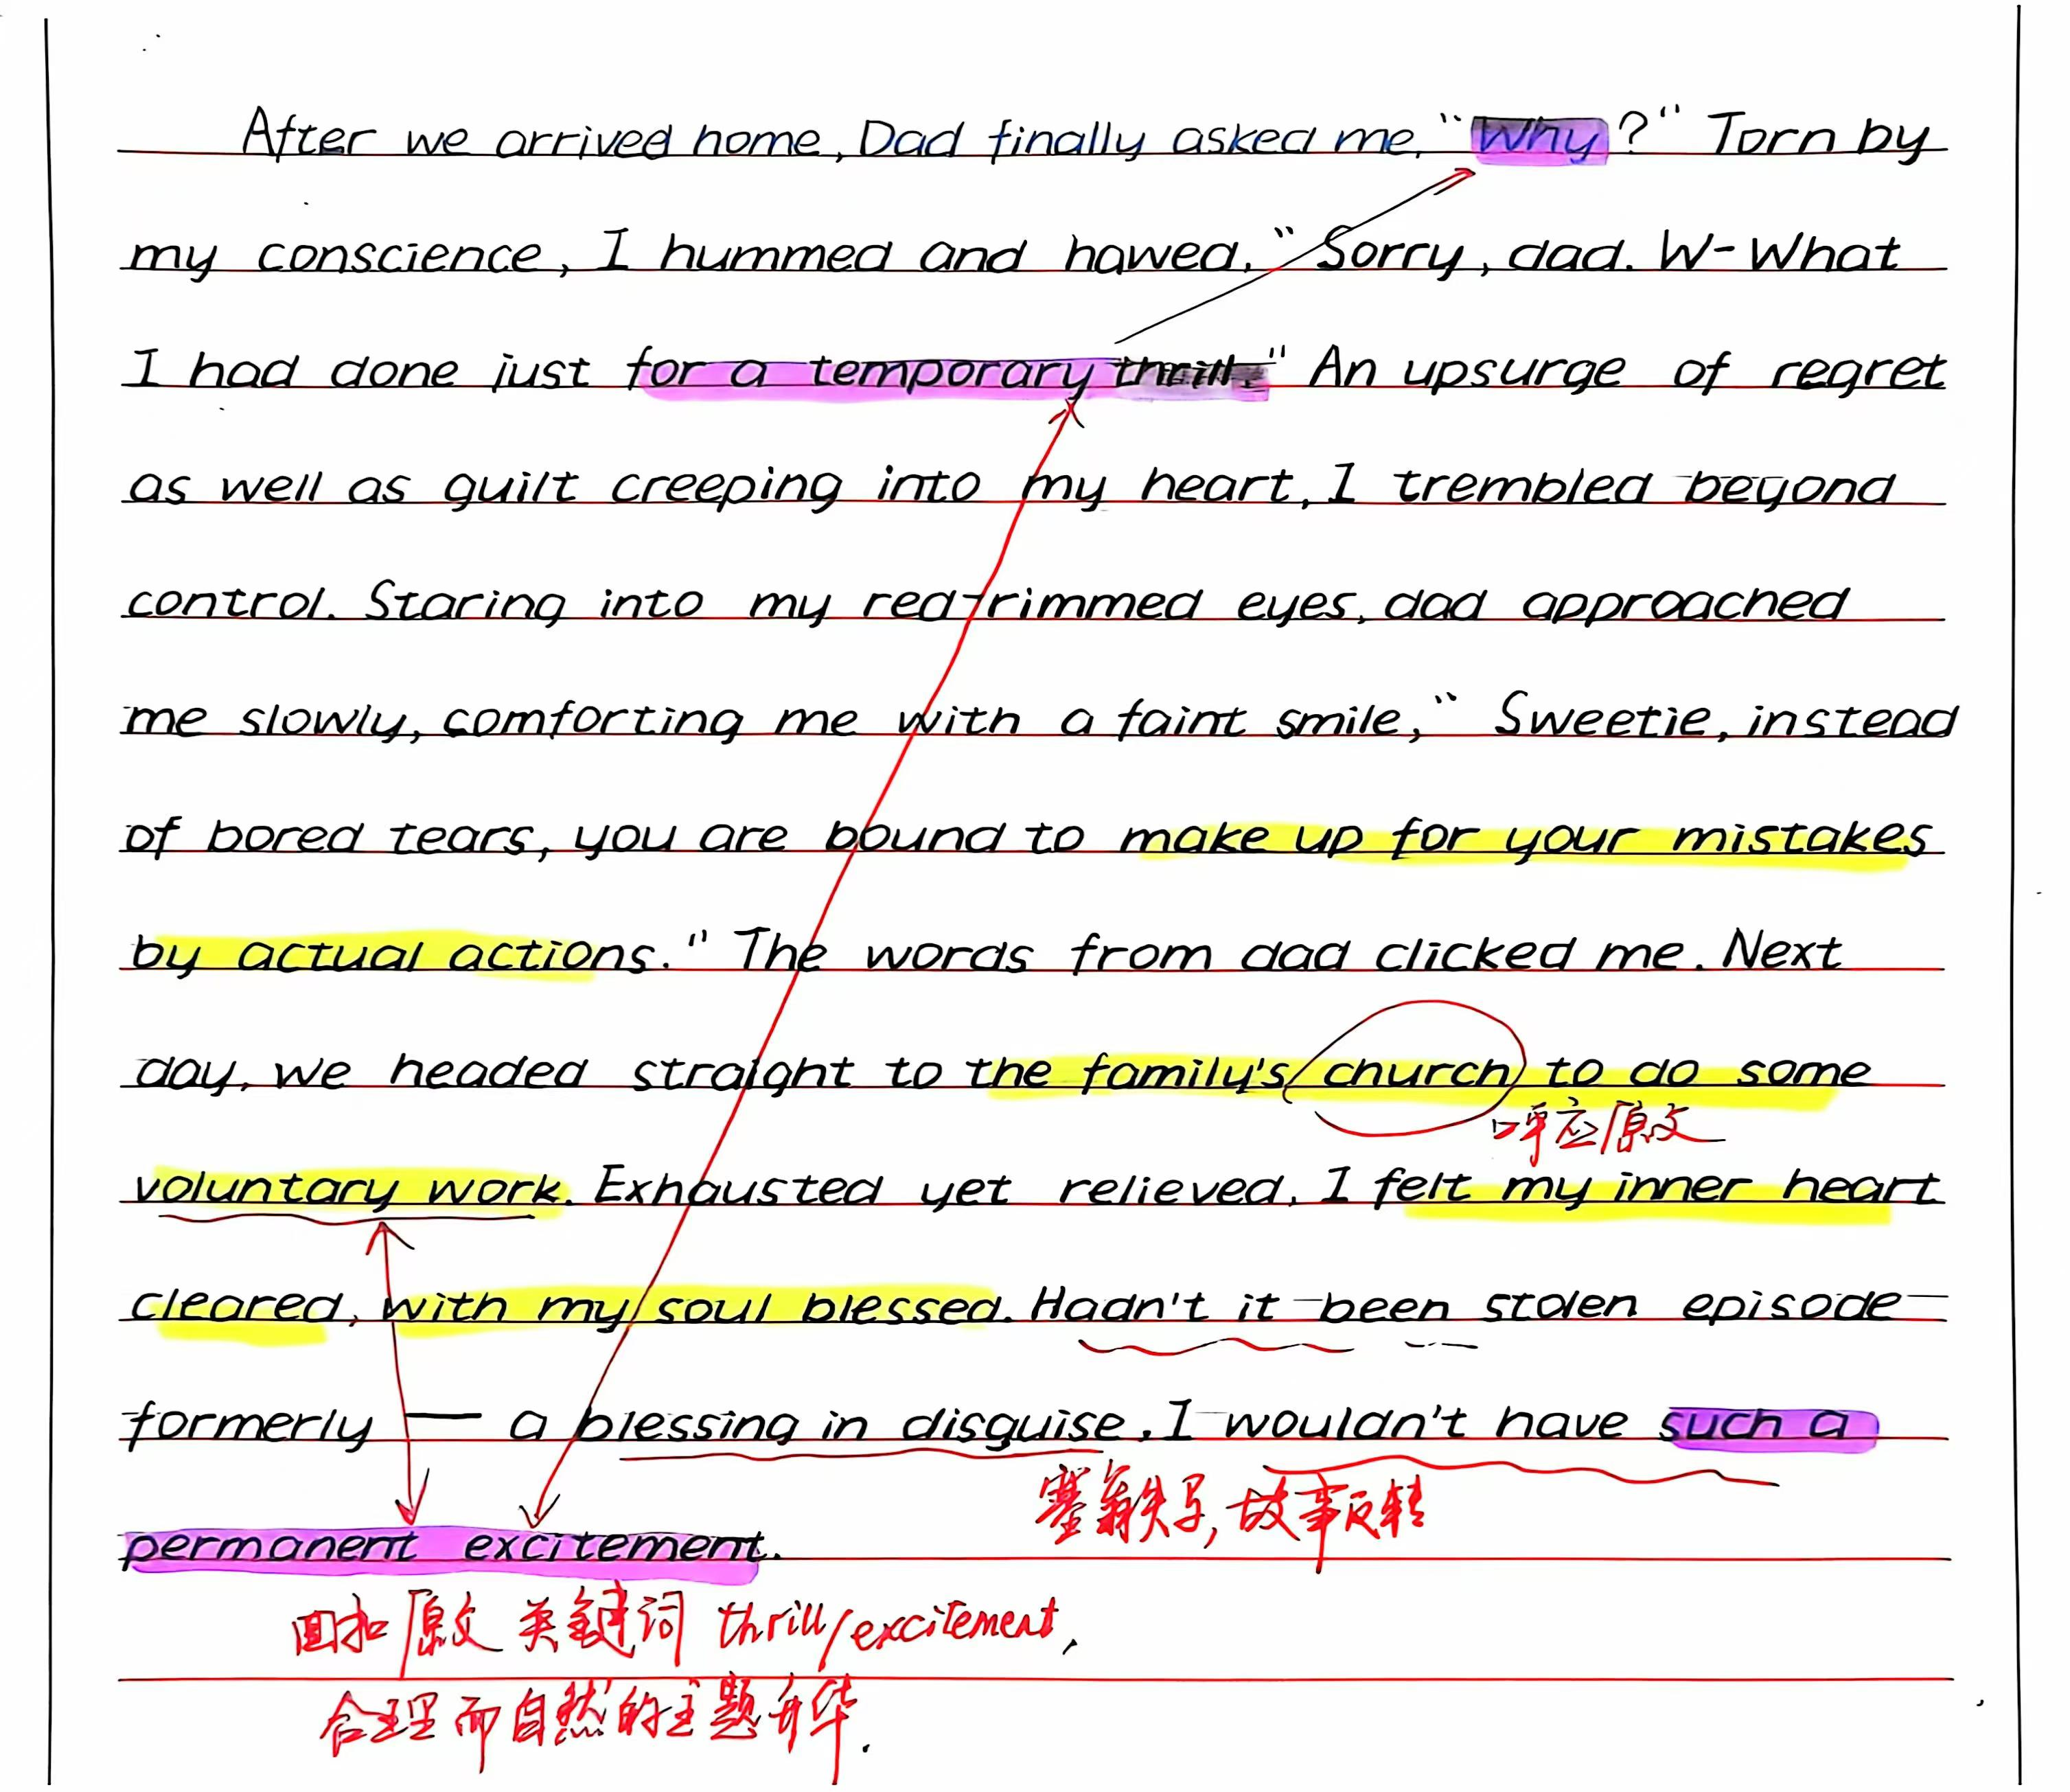 After we arrived home, Dad finally asked me, "Why?" Torn by
my conscience, I hummed and hawed, "Sorry, dad. W-What
I had done just for a temporary thrill." An upsurge of regret
as well as guilt creeping into my heart, I trembled beyond
control. Staring into my red-rimmed eyes, dad approached
me slowly, comforting me with a faint smile, "Sweetie, instead
of bored tears, you are bound to make up for your mistakes
by actual actions." The words from dad clicked me. Next
day, we headed straight to the family's church to do some
呼应原文
voluntary work. Exhausted yet relieved, I felt my inner heart
cleared, with my soul blessed. Hadn't it been stolen episode
formerly — a blessing in disguise, I wouldn't have such a
塞翁失马,故事反转
permanent excitement.
回扣原文关键词 thrill/excitement,
合理而自然的主题升华.